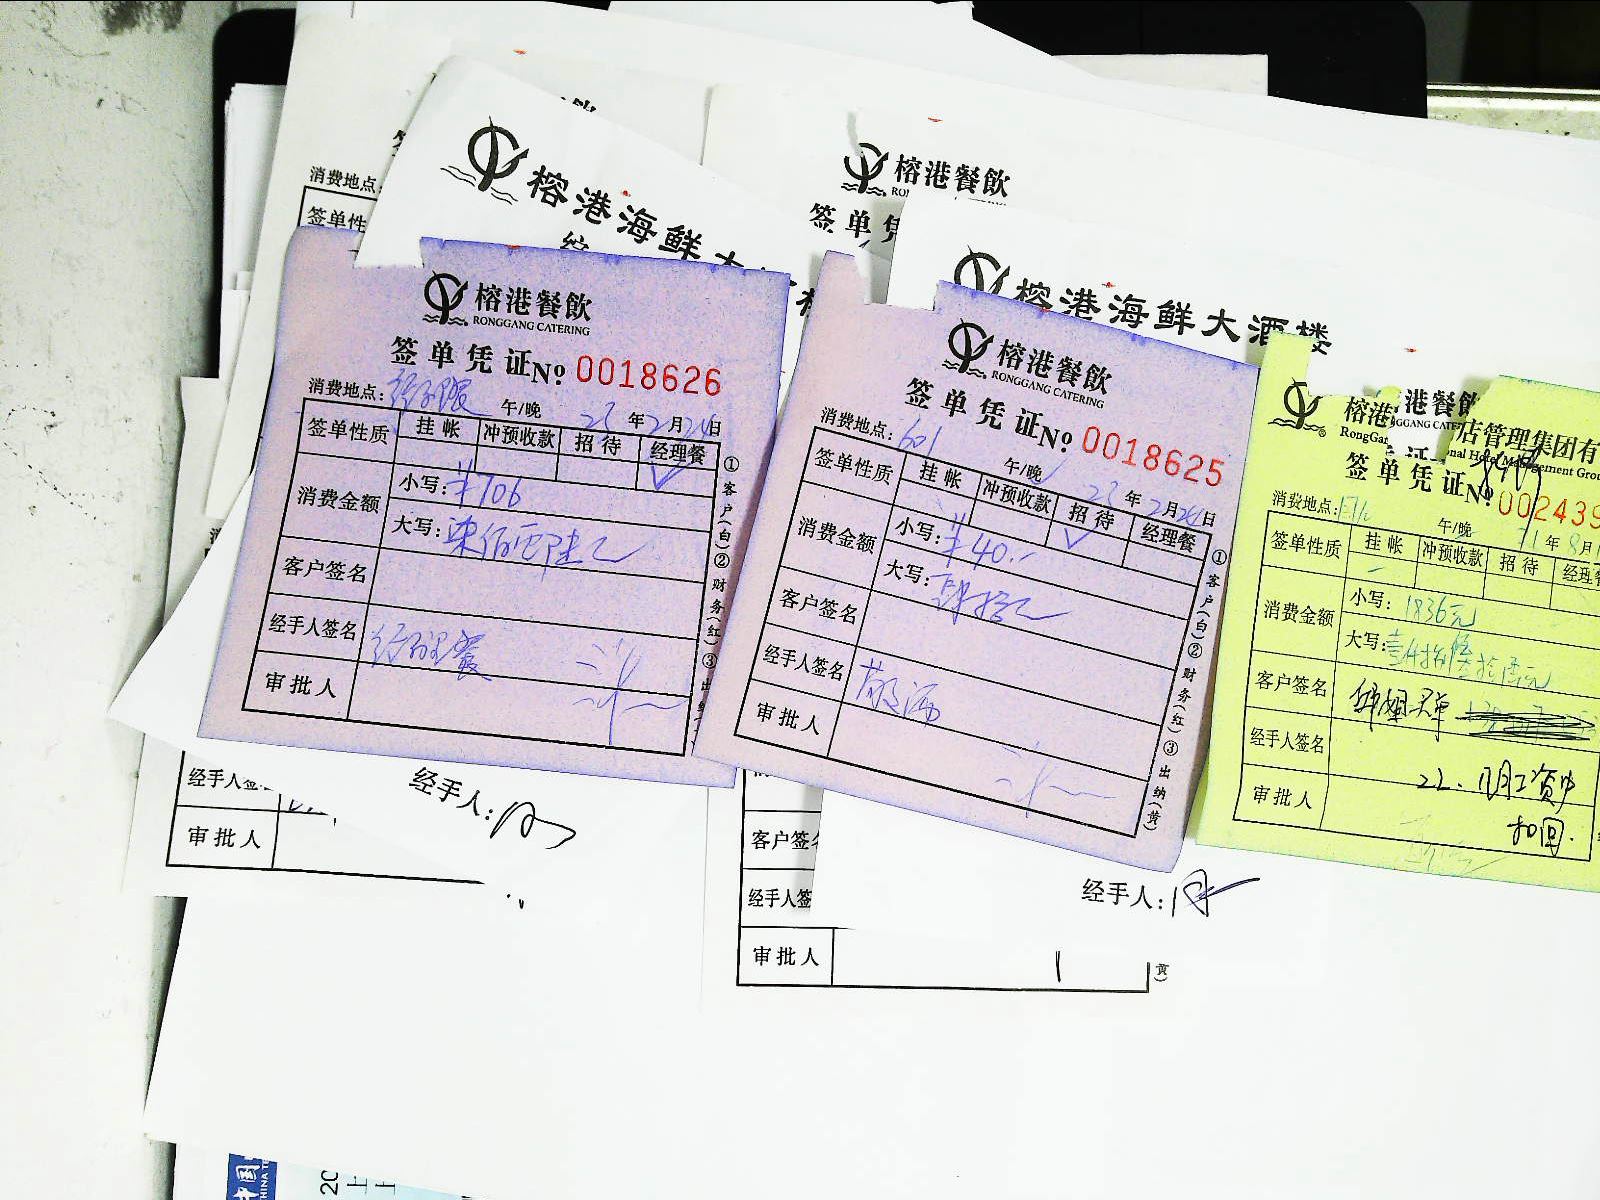 消费地点:
签单性
榕港海鲜大
榕港餐飲
签单凭
榕港海鲜大酒楼
榕港餐飲
RONGGANG CATERING
签单凭证№ 0018626
消费地点:
午/晚 23年2月24日
签单性质 挂帐 冲预收款 招待 经理餐
✓
消费金额 小写: ¥706
大写: 柒佰零陆元
客户签名
经手人签名
审批人
①客户(白)②财务(红)③出
榕港餐飲
RONGGANG CATERING
签单凭证№ 0018625
消费地点: 601
午/晚 23年2月24日
签单性质 挂帐 冲预收款 招待 经理餐
✓
消费金额 小写: ¥40.-
大写: 肆拾元
客户签名
经手人签名
审批人
①客户(白)②财务(红)③出纳(黄)
榕港 港餐飲
RongGan GGANG CATERING
店管理集团有
nal Hotel Management Grou
签单凭证№ 002439
消费地点:
午/晚 21年8月
签单性质 挂帐 冲预收款 招待 经理
消费金额 小写: 1836元
大写:
客户签名
经手人签名
22. 8月工资中
审批人
扣回.
经手人签
审批人
经手人:
客户签
经手人签
审批人
黄)
经手人:
中国
CHINA TE
20
上